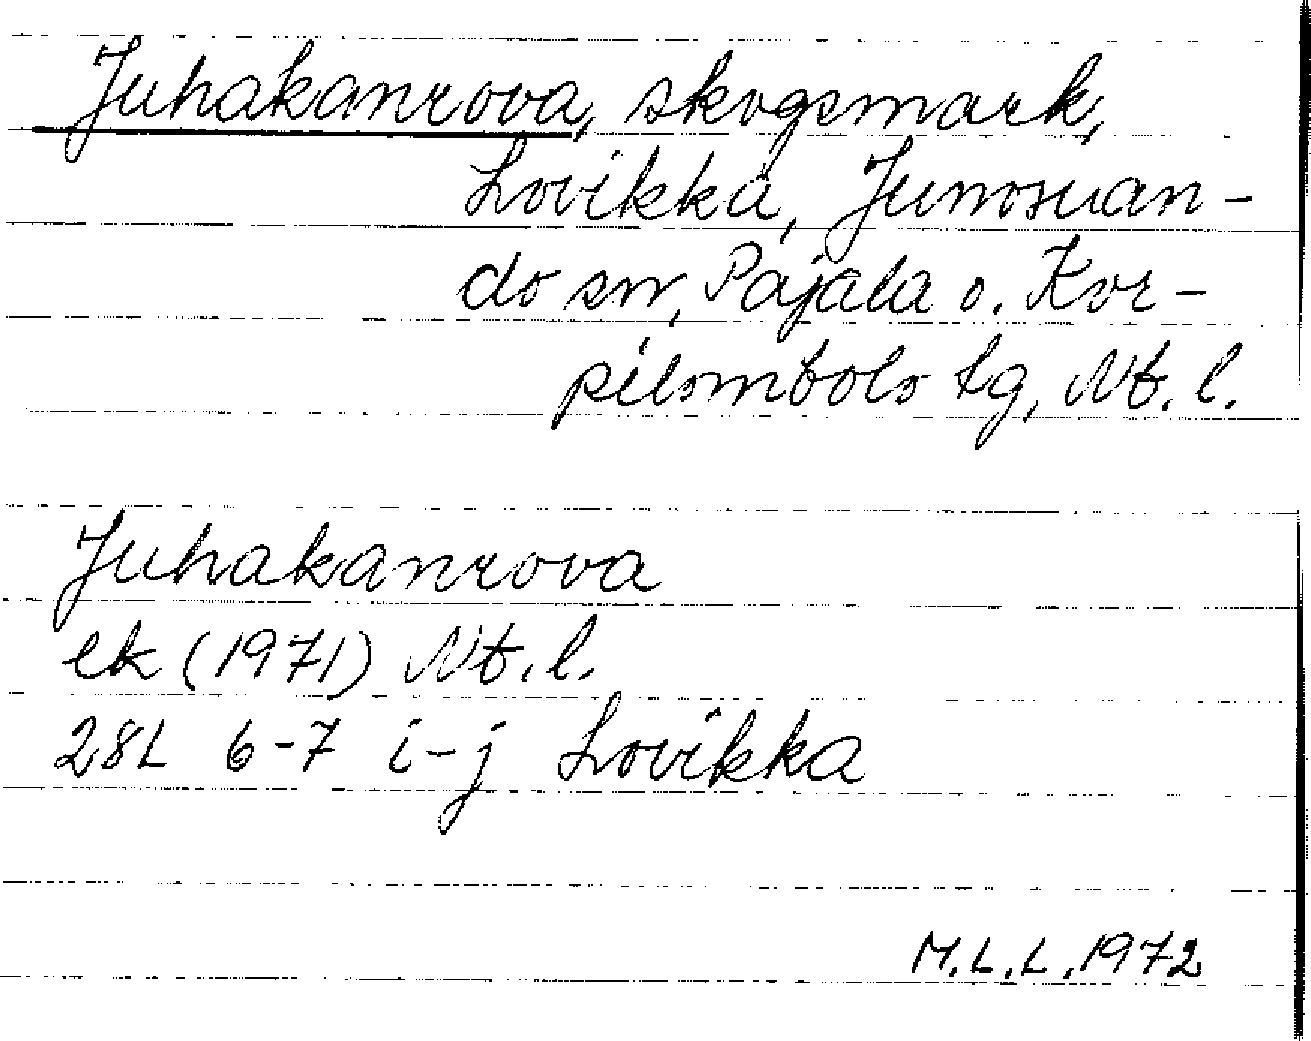 Juhakanrova, skogsmark,
Lovikka, Junosuan-
do sn, Pajala o. Kor-
pilombolo tg, Nb. l.
Juhakanrova
ek (1971) Nb. l.
28L 6-7 i-j Lovikka
M.L.L. 1972